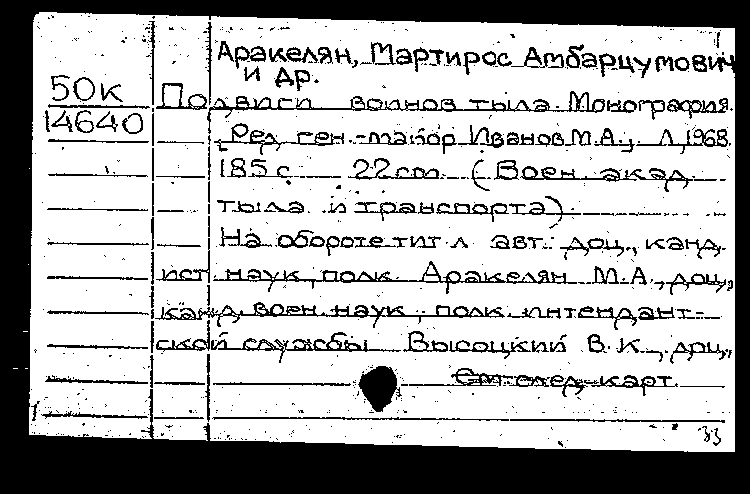 Аракелян, Мартирос Амбарцумович
и др.
50к
14640
Подвиги воинов тыла. Монография.
Ред. ген.-майор Иванов М.А., Л, 1968.
185 с. 22 cm. (Воен. акад.
тыла и транспорта).
На обороте тит. л. авт.: доц., канд.
ист. наук, полк. Аракелян М.А., доц.,
канд. воен. наук, полк. интендант-
ской службы Высоцкий В.К., доц.,
См. след. карт.
33